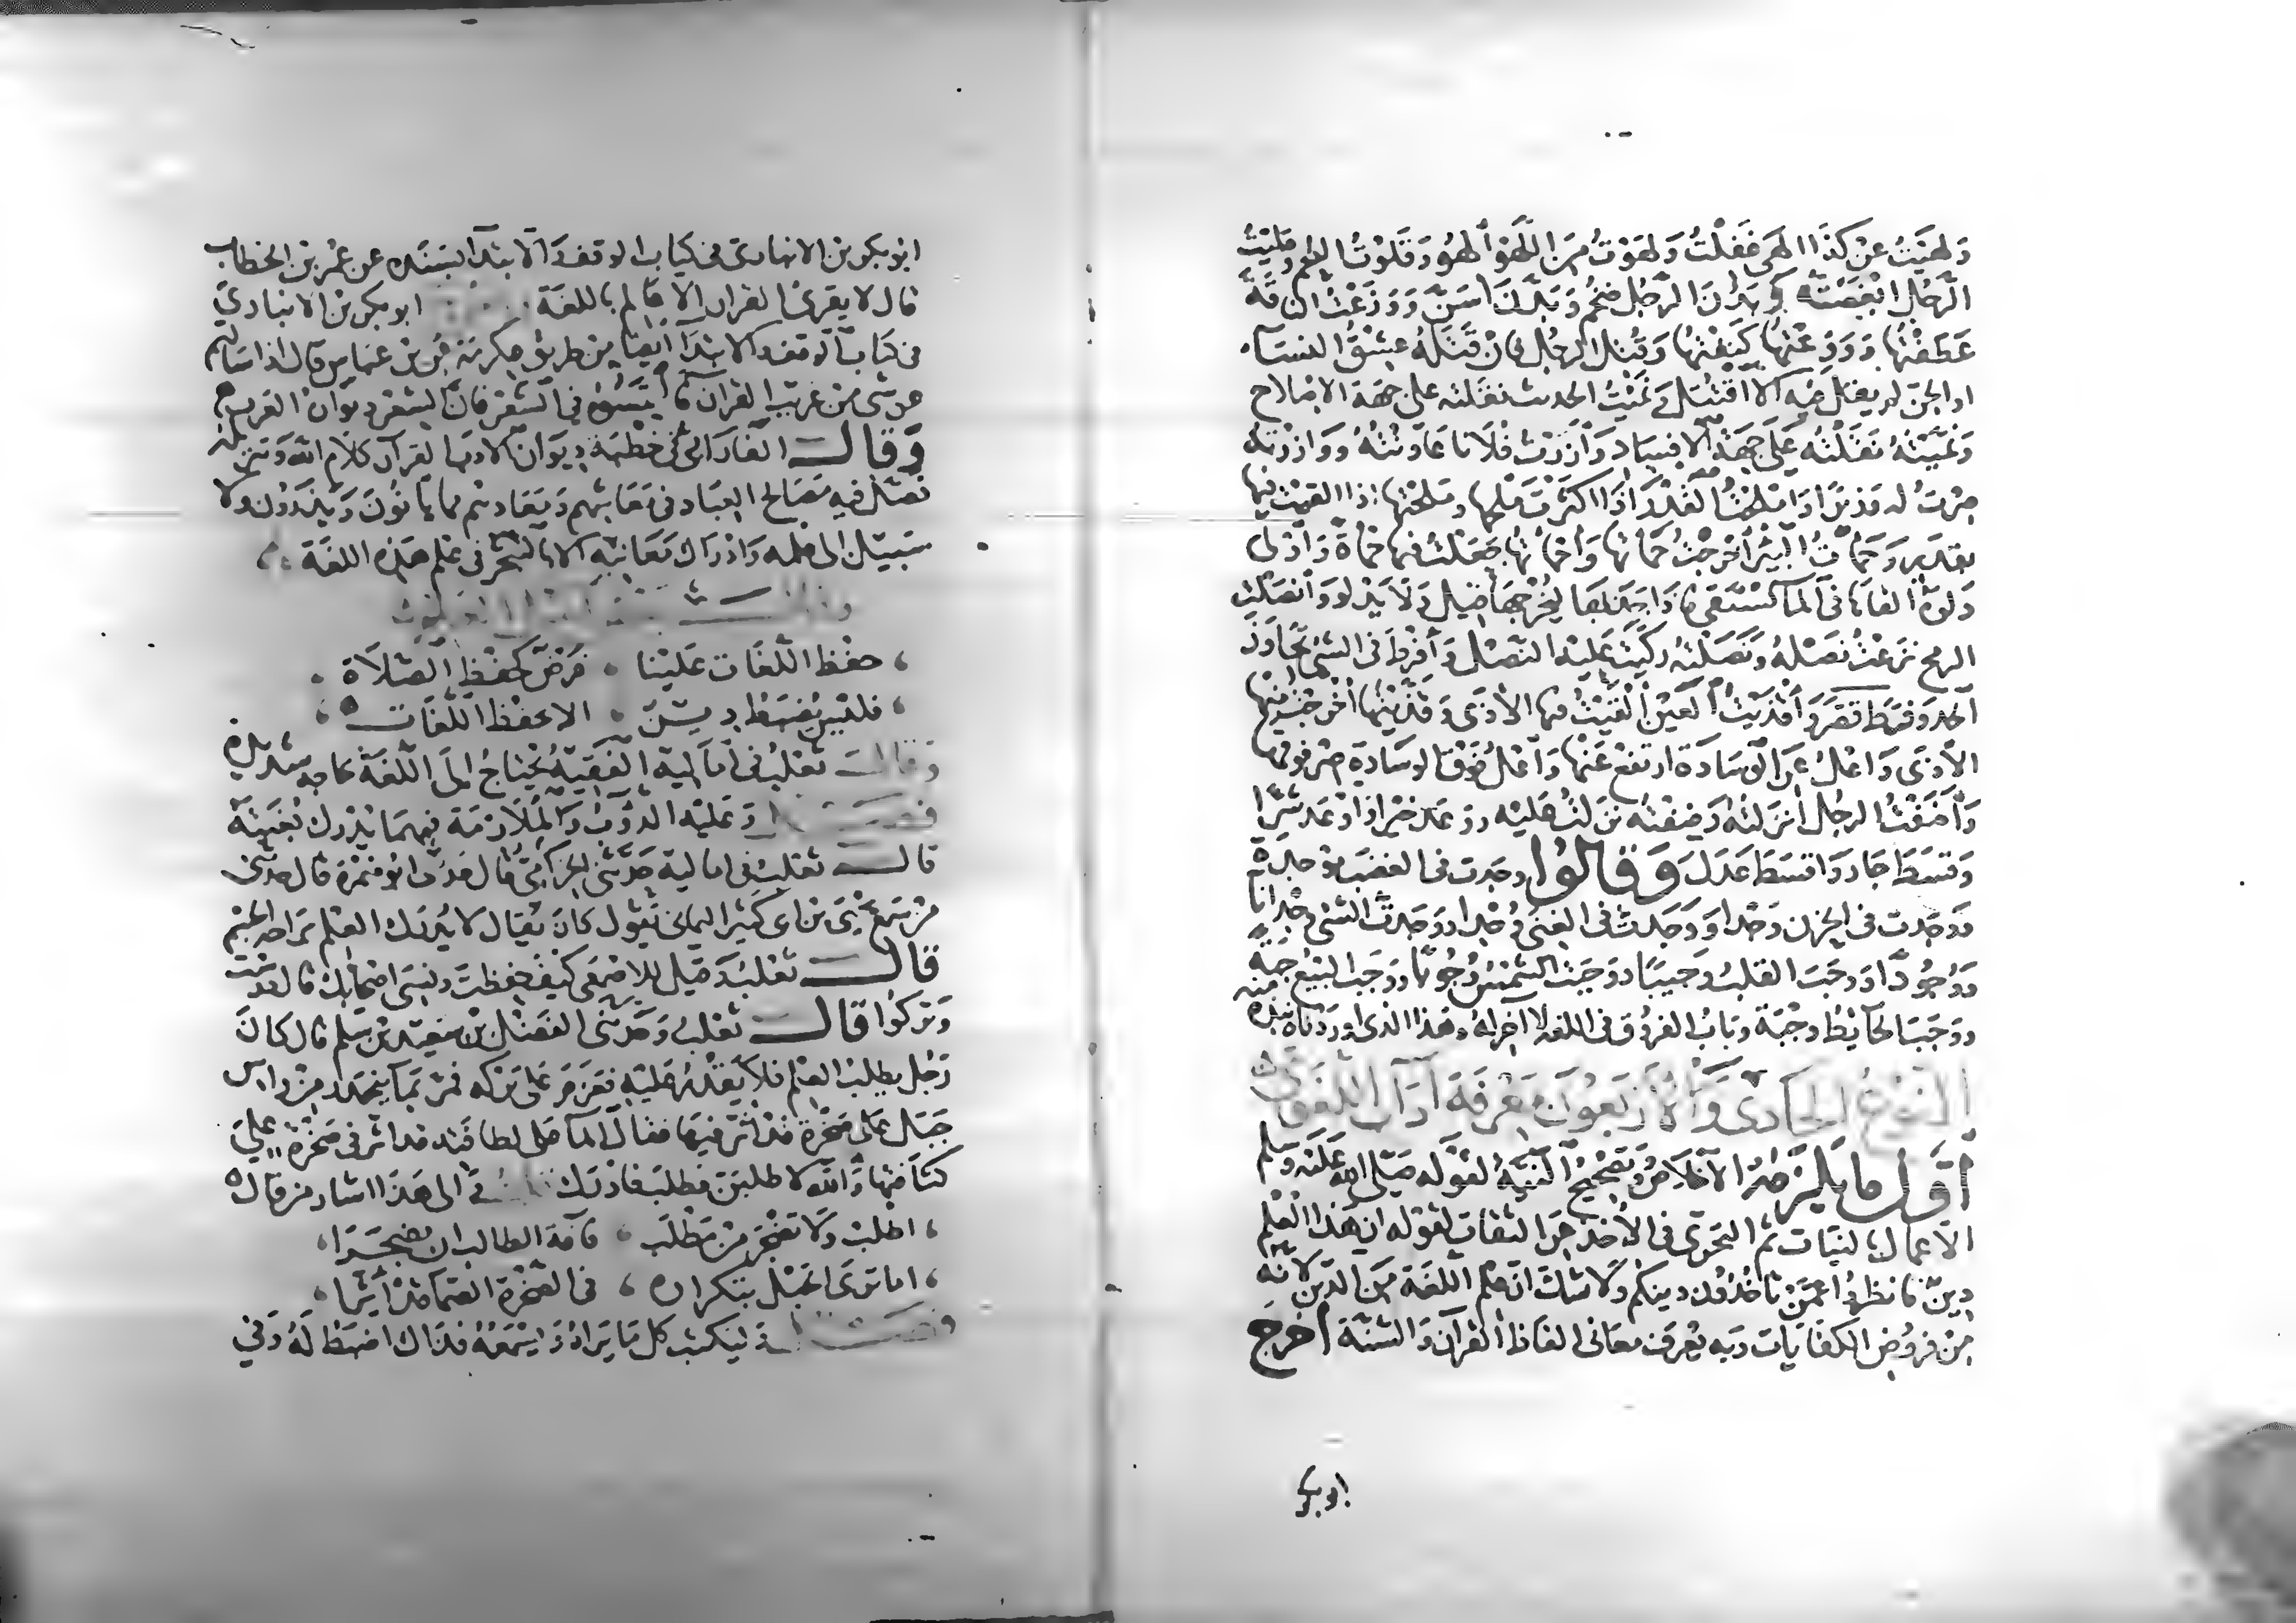 ولهيت عن كذا الهى غفلت ولهوت من اللهو الهو وقلوت اللحم وقليت
الرجل ابغضته وبدن الرجل ضخم وبدن اسن ووزعت الناقة
عطفتها ووزعتها كففتها وقتل الرجل فان قتله عشق النساء
او الجن لم يقل فيه الا اقتتل ونميت الحديث نقلته على جهة الاصلاح
ونميته نقلته على جهة الافساد وآزرت فلانا عاونته ووازرته
صرت له وزيرا واملحت القدر اذا اكثرت ملحها وملحتها اذا القيت فيها
بقدر وحمأت البئر اخرجت حمأتها وأحمأتها جعلت فيها حمأة وادلى
دلوه القاها في الماء يستقي فاذا جذبها ليخرجها قيل دلا يدلو وانصلت
الرمح نزعت نصله ونصلته ركبت عليه النصل وأفرط في الشئ تجاوز
الحد وفرط قصر وأقذيت العين القيت فيها الأذى وقذيتها أخرجت منها
الأذى واعل عن الوسادة ارتفع عنها واعل فوق الوسادة صر فوقها
وأضفت الرجل انزلته وضفته نزلت عليه ووعد خيرا وأوعد شرا
وقسط جار واقسط عدل وقالوا وجدت في الغضب موجدة
ووجدت في الحزن وجدا ووجدت في الغنى وجدا ووجدت الشئ وجدانا
ووجودا ووجب القلب وجيبا ووجبت الشمس وجوبا ووجب البيع جبة
ووجب الحائط وجبة وباب الفروق في اللغة لا آخر له وهذا الذي اوردناه نبذة منه
النوع الحادي والأربعون معرفة آداب اللغوي
أول ما يلزمه الاخلاص وتصحيح النية لقوله صلى الله عليه وسلم
الأعمال بالنيات ثم التحري في الأخذ عن الثقات لقوله ان هذا العلم
دين فانظروا عمن تأخذون دينكم ولا شك ان علم اللغة من الدين لانه
من فروض الكفايات وبه تعرف معاني الفاظ القرآن والسنة أخرج
ابو بكر
ابو بكر بن الانباري في كتاب الوقف والابتداء بسنده عن عمر بن الخطاب
قال لا يقرئ القرآن الا عالم باللغة ابو بكر بن الانباري
في كتاب الوقف والابتداء ايضا من طريق عكرمة عن بن عباس قال اذا سألتم
عن شئ من غريب القرآن فالتمسوه في الشعر فان الشعر ديوان العرب
وقال الفارابي في خطبة ديوان الادب القرآن كلام الله وتنزيله
فصل فيه مصالح العباد في معاشهم ومعادهم مما يأتون ويذرون ولا
سبيل الى علمه وادراك معانيه الا بالتبحر في علم هذه اللغة
حفظ اللغات علينا فرض كحفظ الصلاة
فليس يضبط دين الا بحفظ اللغات
وقال ثعلب في اماليه الفقيه يحتاج الى اللغة حاجة شديدة
وعليه الدؤب والملازمة فبهما يدرك بغيته
قال ثعلب في اماليه حدثني الحزامي قال حدثنا ابو ضمرة قال حدثني
من سمع يحيى بن ابي كثير اليماني يقول كان يقال لا يدرك العلم براحة الجسم
قال ثعلب وقيل للاصمعي كيف حفظت ونسى اصحابك قال درست
وتركوا قال ثعلب وحدثني الفضل بن سعيد بن سلم قال كان
رجل يطلب العلم فلا يقدر عليه فعزم على تركه فمر بماء ينحدر من راس
جبل على صخرة قد اثر فيها فقال الماء على لطافته قد اثر في صخرة على
كثافتها والله لاطلبن فطلب فادرك والى هذا اشار من قال
اطلب ولا تضجر من مطلب فآفة الطالب ان يضجرا
اما ترى الحبل بتكراره في الصخرة الصماء قد أثرا
وليكتب كل ما يراه ويسمعه فذاك اضبط له وفي